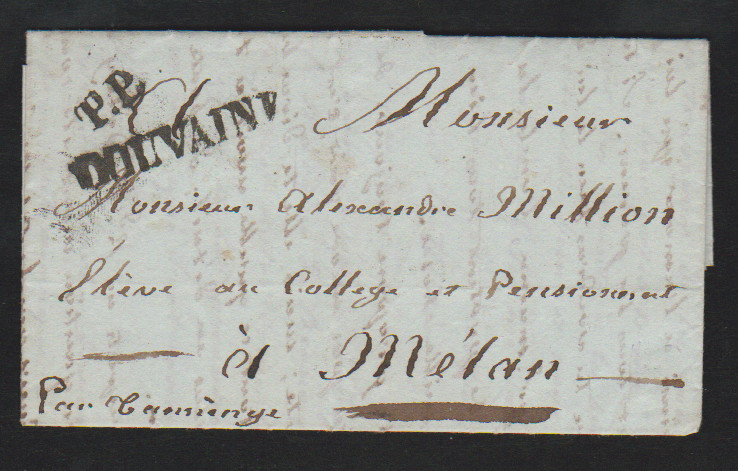 P.P.
DOUVAINE
A Monsieur
Monsieur Alexandre Million
Elève au College et Pensionnat
à Mélan
Par Taninge